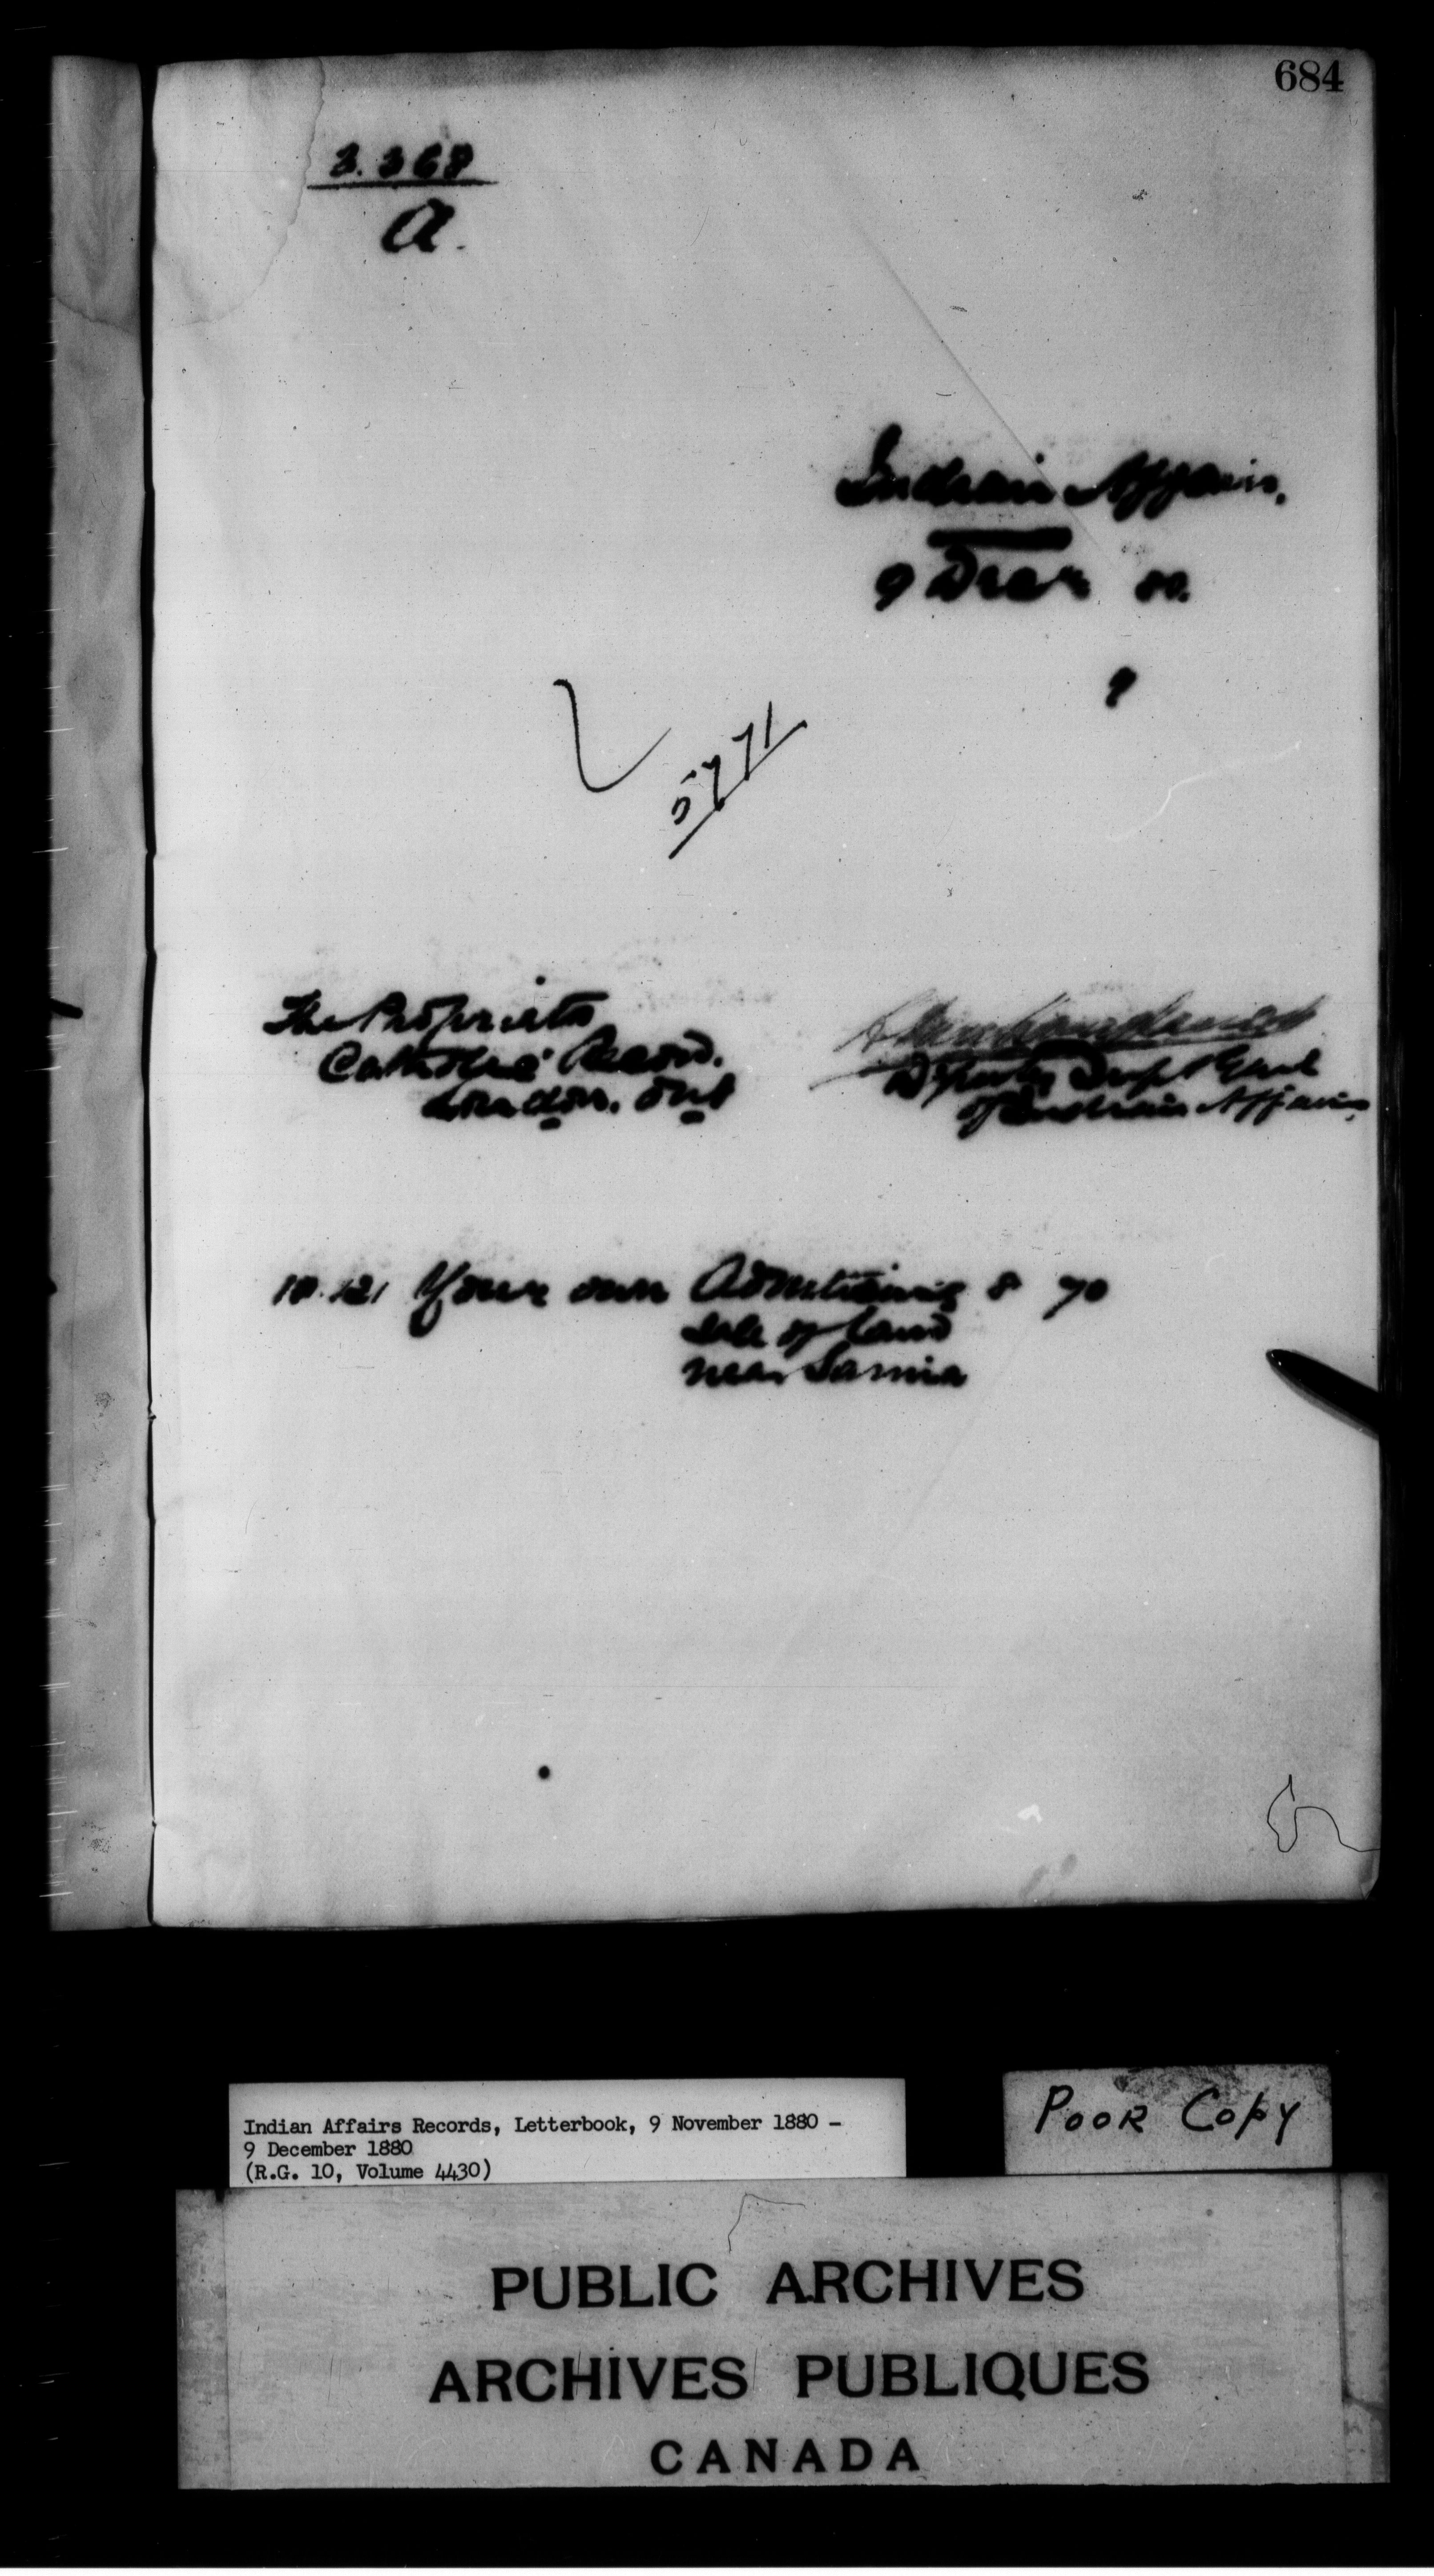 684
3.368
A.
Indian Affairs.
9 Decr 80.
9
5771
The Proprietor
Catholic Record.
London. Ont
Deputy Supt Genl
of Indian Affairs
10.121 Your own Advertising 8 70
Sale of land
near Sarnia
Indian Affairs Records, Letterbook, 9 November 1880 -
9 December 1880
(R.G. 10, Volume 4430)
POOR COPY
PUBLIC ARCHIVES
ARCHIVES PUBLIQUES
CANADA